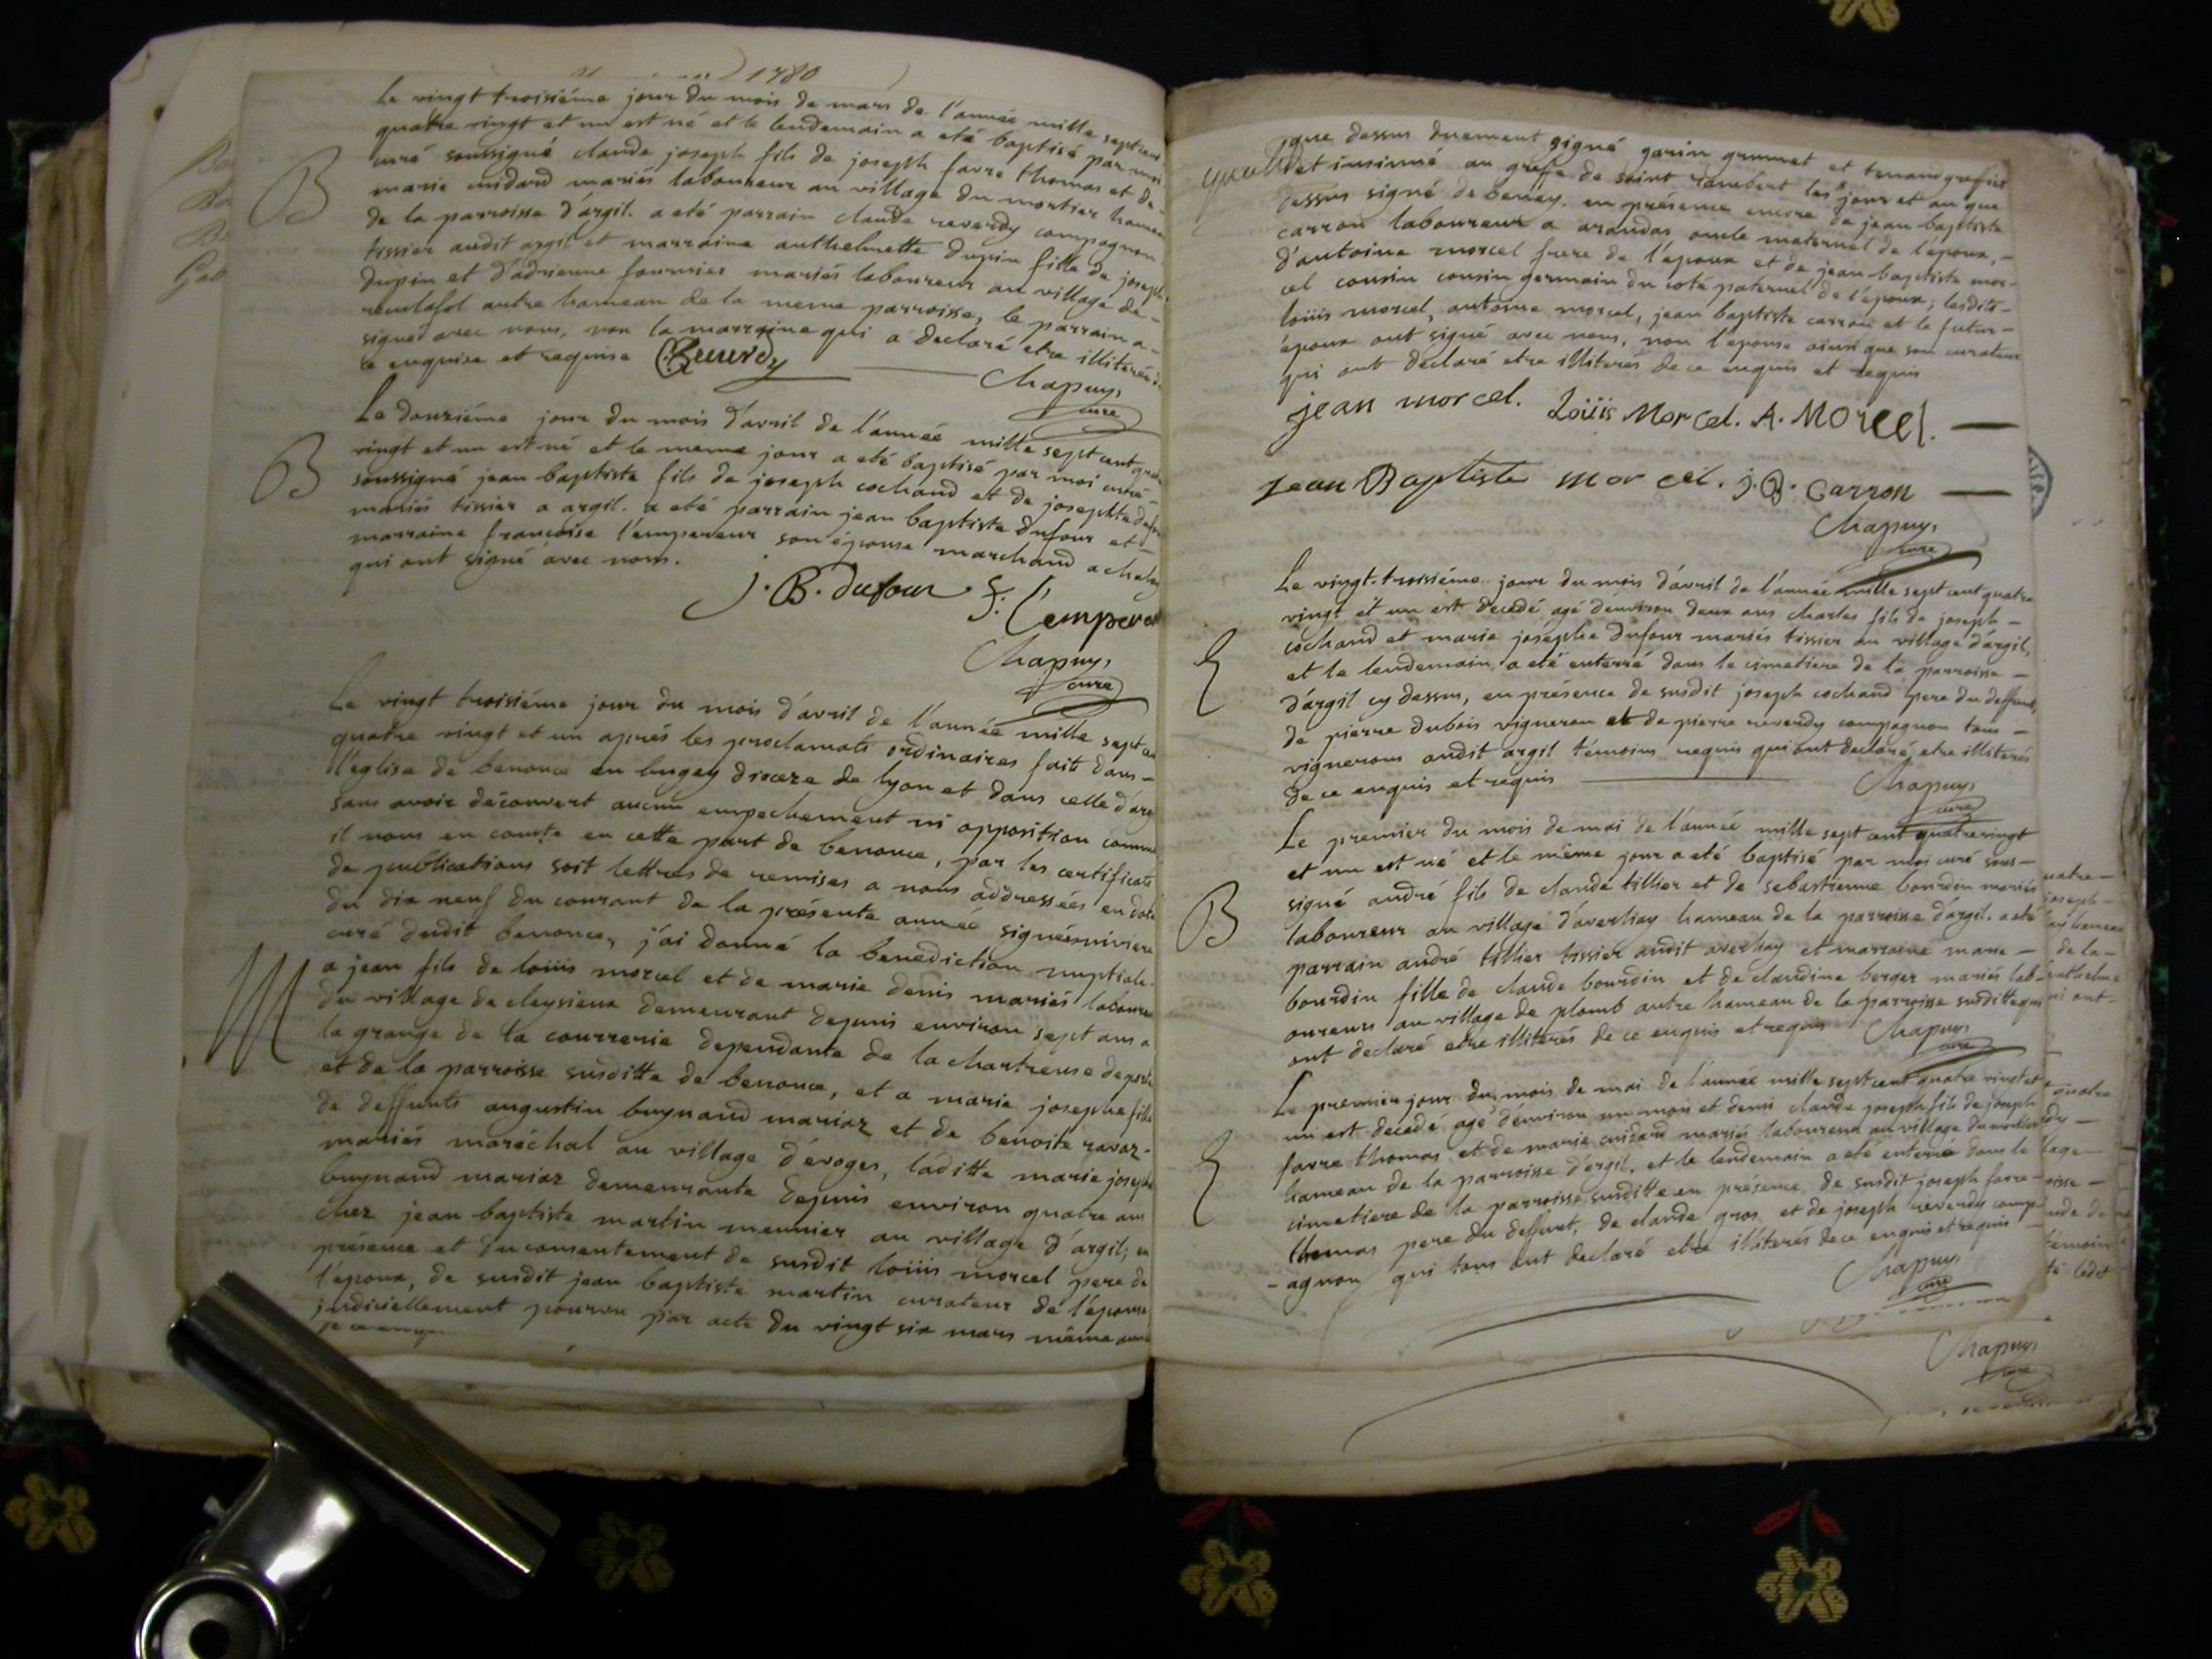 1780
Le vingt troisiéme jour du mois de mars de l'année mille sept cent
quatre vingt et un est né et le lendemain a eté baptisé par moi
curé soussigné claude joseph fils de joseph favre thomas et de
marie cuidard mariés laboureur au village du mortier hameau
B
de la parroisse d'argil. a eté parrain claude reverdy compagnon
tissier audit argil et marraine anthelmette dupin fille de joseph
dupin et d'adrienne fournier mariés laboureur au village de
autre hameau de la meme parroisse, le parrain a
signé avec nous, non la marraine qui a declaré etre illiterée de
ce enquise et requise C. Reverdy
Chapuy,
curé
Le douziéme jour du mois d'avril de l'année mille sept cent quatre
vingt et un est né et le meme jour a eté baptisé par moi curé
B
soussigné jean baptiste fils de joseph cochand et de josephte dufour
mariés tissier a argil. a eté parrain jean baptiste dufour et
marraine françoise l'empereur son épouse marchand a
qui ont signé avec nous.
J. B. dufour f. l'empereur
Chapuy,
curé
Le vingt troisiéme jour du mois d'avril de l'année mille sept cent
quatre vingt et un aprés les proclamats ordinaires faits dans
l'église de benonce en bugey diocese de lyon et dans celle d'argil
sans avoir découvert aucun empechement ni opposition comme
il nous en conste en cette part de benonce, par les certificats
de publications soit lettres de remises a nous addressées en date
du dix neuf du courant de la présente année signées
curé dudit benonce, j'ai donné la benediction nuptiale
M
a jean fils de loüis morcel et de marie denis mariés laboureur
du village de cleysieux demeurant depuis environ sept ans a
la grange de la courrerie dependante de la chartreuse de portes
et de la parroisse susditte de benonce, et a marie josephe fille
de deffunts augustin buynand mariaz et de benoite ravaz
mariés maréchal au village d'évoges, laditte marie josephe
buynand mariaz demeurante depuis environ quatre ans
chez jean baptiste martin meunier au village d'argil; en
présence et du consentement de susdit loüis morcel pere de
l'époux, de susdit jean baptiste martin curateur de l'épouse
judiciellement pourvu par acte du vingt six mars même année
que dessus duement signé garin grumet et tenand greffier
et insinué au grefe de saint rambert les jour et an que
dessus signé de benney. en présence encore de jean baptiste
carron laboureur a arandas oncle maternel de l'époux,
d'antoine morcel frere de l'époux et de jean baptiste mor-
cel cousin cousin germain du coté paternel de l'époux; lesdits
loüis morcel, antoine morcel, jean baptiste carron et le futur
époux ont signé avec nous, non l'épouse ainsi que son curateur
qui ont declaré etre illiterés de ce enquis et requis
jean morcel. Loüis Morcel. A. Morcel.
jean Baptiste morcel. j. B. Carron
Chapuy,
curé
Le vingt-troisiéme jour du mois d'avril de l'année mille sept cent quatre
vingt et un est decedé agé d'environ deux ans charles fils de joseph
cochand et marie josephe dufour mariés tissier au village d'argil,
et le lendemain a eté enterré dans le cimetiere de la parroisse
d'argil cy dessus, en présence de susdit joseph cochand pere du deffunt,
de pierre dubois vigneron et de pierre reverdy compagnon tous
vignerons audit argil témoins requis qui ont declaré etre illiterés
de ce enquis et requis
Chapuy,
curé
Le premier du mois de mai de l'année mille sept cent quatre vingt
et un est né et le même jour a eté baptisé par moi curé sous-
B
signé andré fils de claude tillier et de sebastienne bourdin mariés
laboureur au village d'averliay hameau de la parroisse d'argil. a eté
parrain andré tillier tissier audit averliay et marraine marie
bourdin fille de claude bourdin et de claudine berger mariés lab-
oureurs au village de plomb autre hameau de la parroisse susditte qui
ont declaré etre illiterés de ce enquis et requis
Chapuy,
curé
Le premier jour du mois de mai de l'année mille sept cent quatre vingt et
un est decedé agé d'environ un mois et demi claude joseph fils de joseph
favre thomas et de marie cuidard mariés laboureur au village du mortier
hameau de la parroisse d'argil, et le lendemain a eté enterré dans le
cimetiere de la parroisse susditte en présence de susdit joseph favre
thomas pere du deffunt, de claude gros et de joseph reverdy comp-
agnon qui tous ont declaré etre illiterés de ce enquis et requis
Chapuy,
curé
Chapuy,
curé